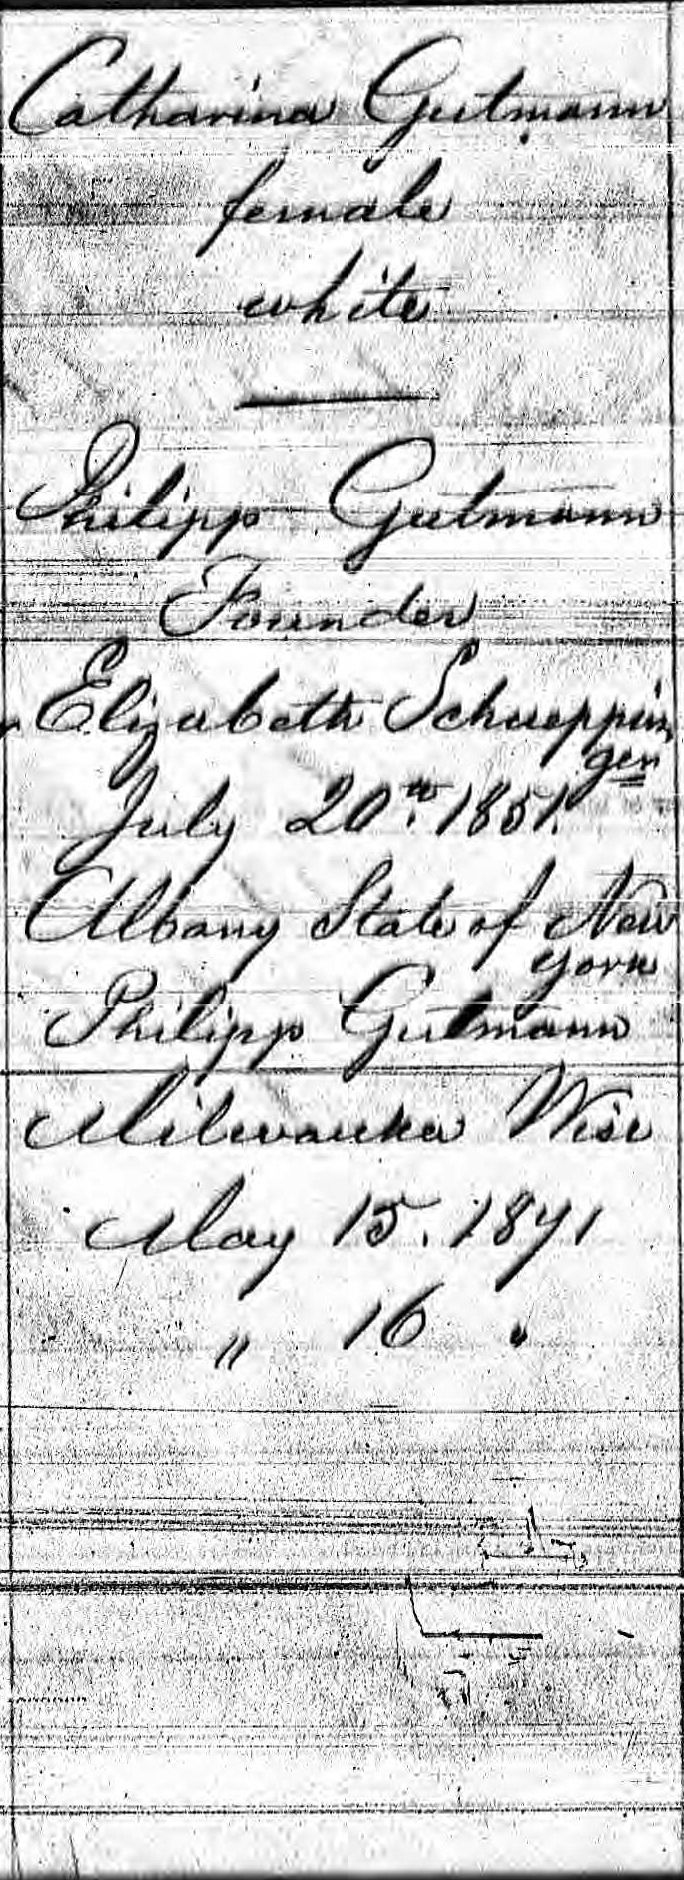 Catharina Gutmann
female
white
Philipp Gutmann
Founder
Elizabeth Schueppin
gen
July 20th. 1851.
Albany State of New
York
Philipp Gutmann
Milwaukee Wisc
May 15. 1871
" 16 "